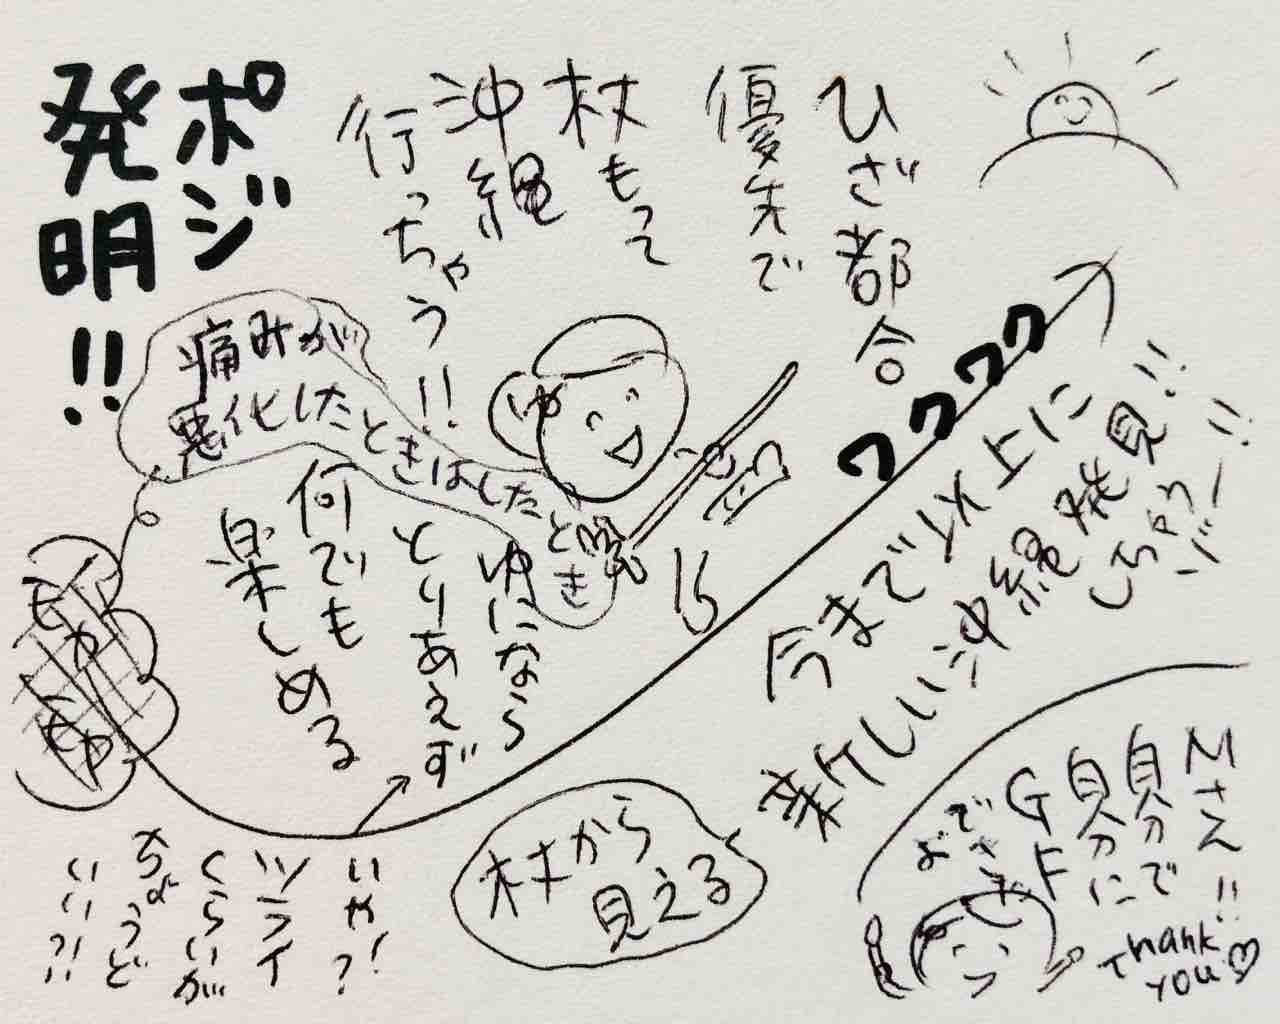 ポジ
発明!!
ひざ都合
優先で
杖もって
沖縄
行っちゃう!!
痛みが
悪化したときはしたとき
ゆ
ゆになら
とりあえず
何でも
楽しめる
もや
もや
ワクワク
今まで以上に
楽しい沖縄発見!!
しちゃうゾー!!
杖から
見える
いや?!
ツライ
くらいが
ちょうど
いい?!
Mさん!!
自分で
自分に
GF
できたよ
Thank
you♡